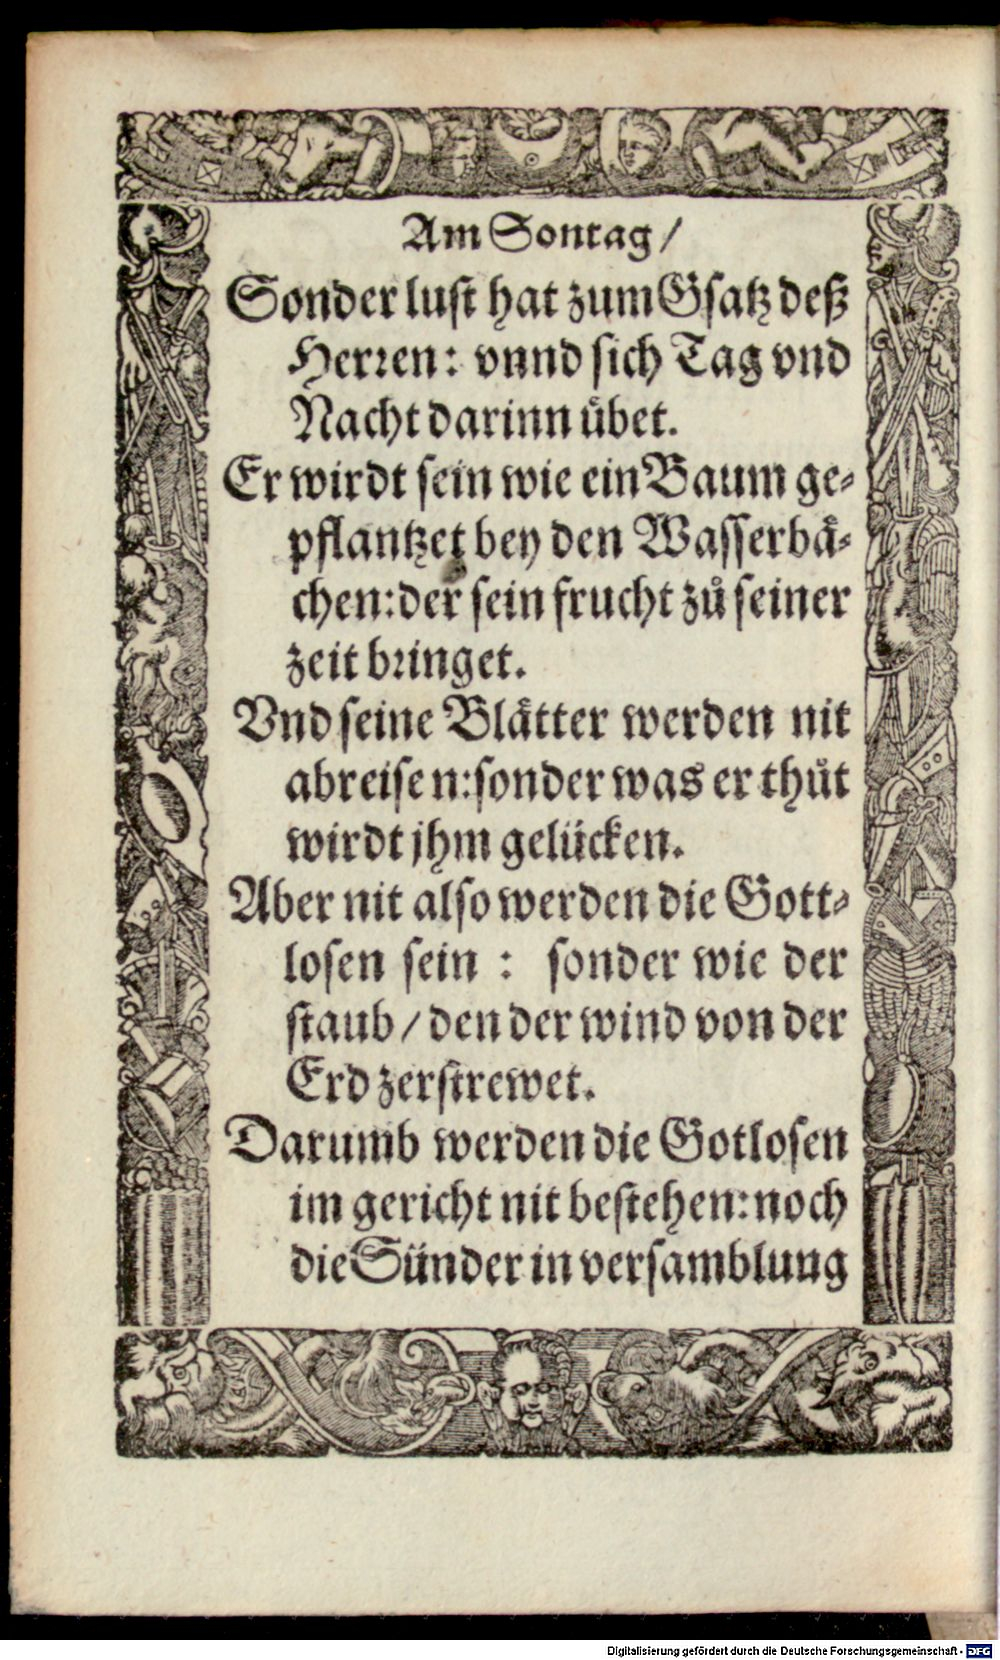 Am Sontag/
Sonder lust hat zum Gsatz deß
Herren: vnnd sich Tag vnd
Nacht darinn uͤbet.
Er wirdt sein wie ein Baum ge-
pflantzet bey den Wasserbaͤ-
chen: der sein frucht zuͦ seiner
zeit bringet.
Vnd seine Blaͤtter werden nit
abreisen: sonder was er thuͦt
wirdt jhm gelücken.
Aber nit also werden die Gott-
losen sein : sonder wie der
staub/ den der wind von der
Erd zerstrewet.
Darumb werden die Gotlosen
im gericht nit bestehen: noch
die Sünder in versamblung
Digitalisierung gefördert durch die Deutsche Forschungsgemeinschaft - DFG